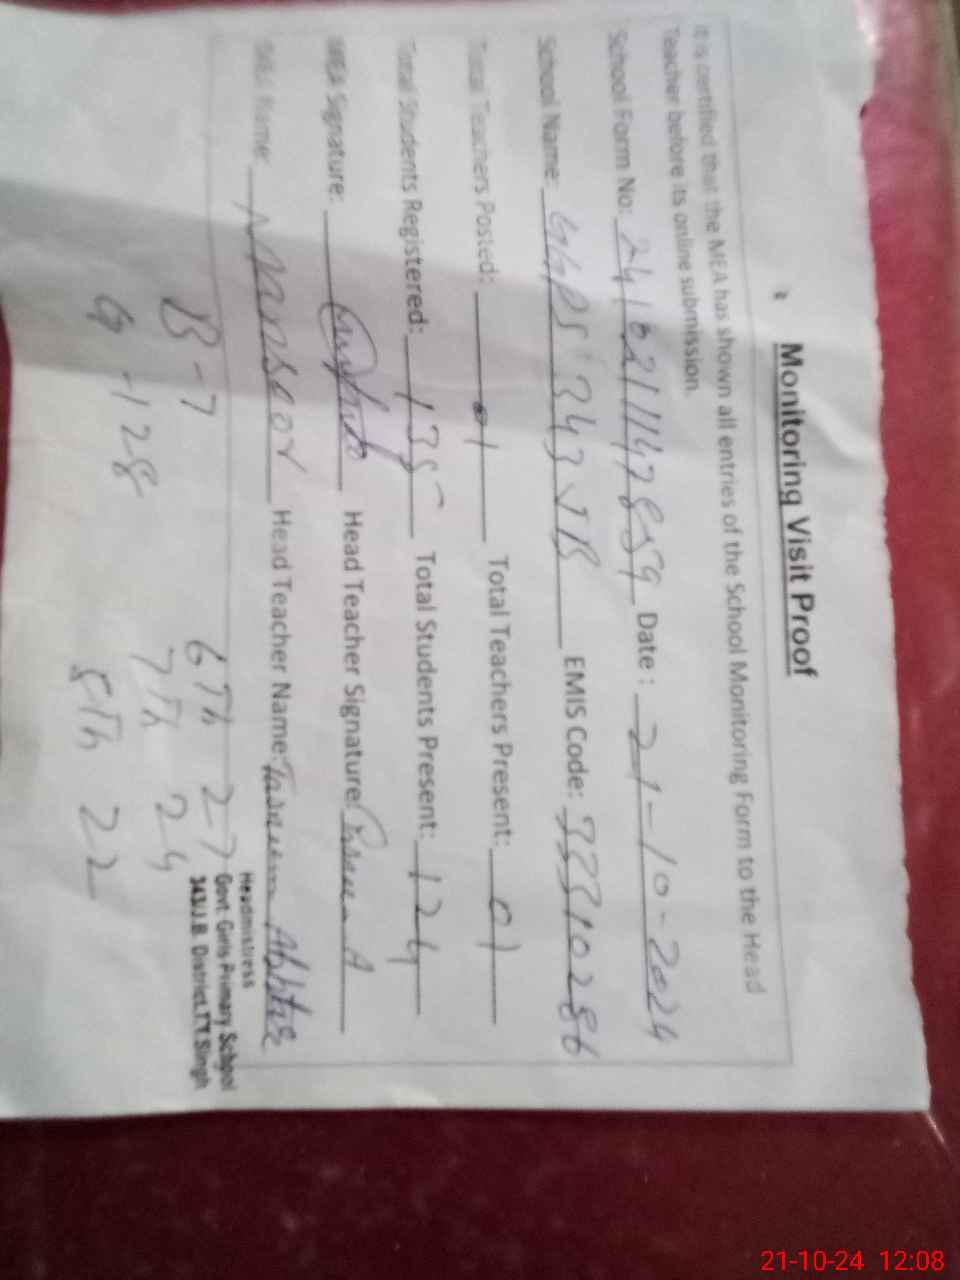 Monitoring Visit Proof
It is certified that the MEA has shown all entries of the School Monitoring Form to the Head
Teacher before its online submission.
School Form No: Date: 21-10-2024
School Name: GGPS 343 JB EMIS Code: 33310286
Total Teachers Posted: 01 Total Teachers Present: 01
Total Students Registered: 135 Total Students Present: 124
MEA Signature: Head Teacher Signature:
MEA Name: Mansoor Head Teacher Name:
Headmistress
Govt. Girls Primary School
343/J.B. District.T.T.Singh
B-7 6Th 27
G-128 7Th 24
8Th 22
21-10-24 12:08